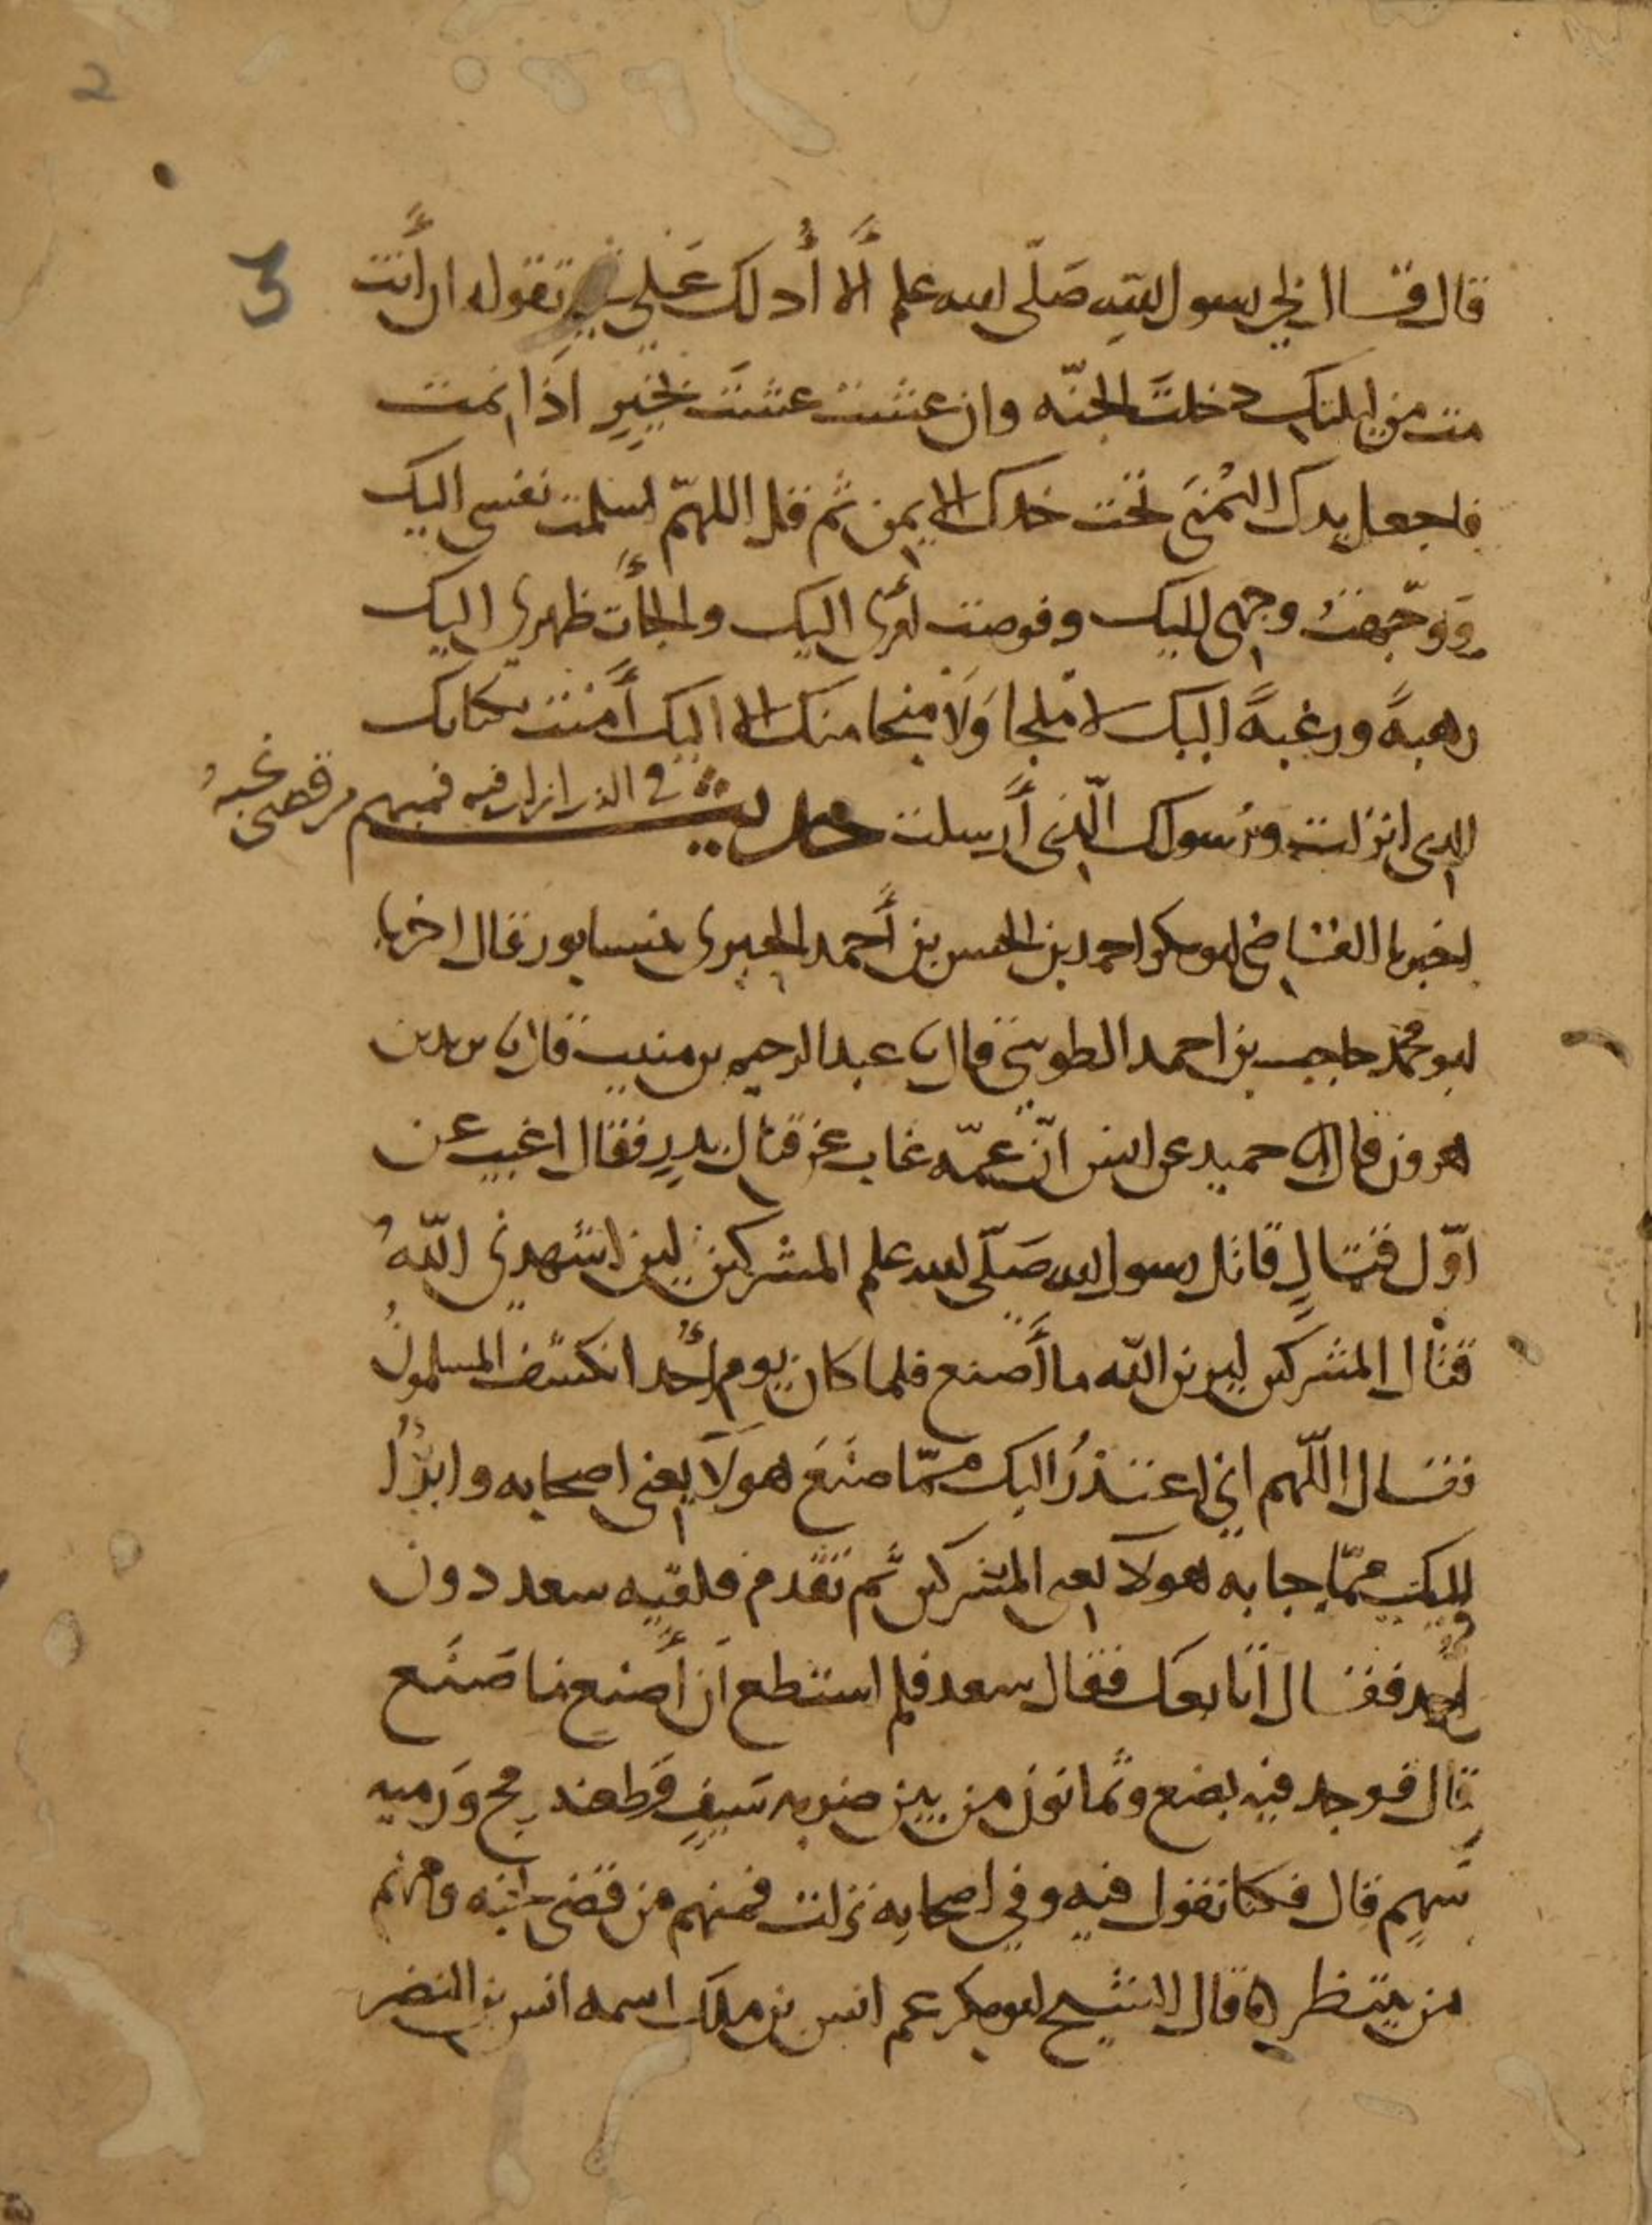 قال قال لي رسول الله صَلّى الله علم أَلا أُدلك عَلى شي تقوله ان أنت
مت من ليلتك دخلتَ الجنّه وان عشت عشتَ بخيرٍ اذَا نمت
فاجعل يدك اليُمنَى تحت خدك الايمن ثم قل اللهمّ اسلمت نفسى اليك
وَوَجّهتُ وجهى اليك وفوضت امرى اليك والجأت ظهرى اليك
رهبهً ورغبهً اليك لا ملجا وَلا منجا منك الا اليك أمنت بكتابك
الذى انزلت ورسولك الّذى أرسلت حديث في الذين انزل فيه فمنهم من قضى نحبهُ
اخبرنا القاضى ابو بكر احمد بن الحسن بن أحمد الحيرى بنيسابور قال اخبرنا
ابو محمد حاجب بن احمد الطوسى قال نا عبد الرحيم بن منيب قال نا يزيد بن
هرون قال انا حميد عن انس انّ عمّه غاب عن قتال بدرٍ فقال اغيب عن
اوّل قتالٍ قاتل رسول الله صَلّى الله علم المشركين لين اشهدنى اللهُ
قتال المشركين ليرين الله ما أصنع فلما كان يوم أُحد انكشف المسلمونُ
فقال اللّهم انى اعتذرُ اليك ممّا صنَعَ هولآ يعنى اصحابه وابرُأ
اليك ممّا جا به هولآ يعنى المشركين ثم تقَدم فلقيه سعد دون
أُحد فقال أنا معك فقال سعد فلم استطع اَن أصنع ما صَنَع
قال فوجد فيه بضع وثمانون من بين ضربه سَيفٍ وَطعنه رمح وَرميه
سَهمٍ قال فكنا نقول فيه وفي اصحابه نزلت فمنهم من قضى نحبه ومنهم
من ينتظر ه قال الشيح ابو بكر عم انس بن ملك اسمه انس بن النضر
2
3